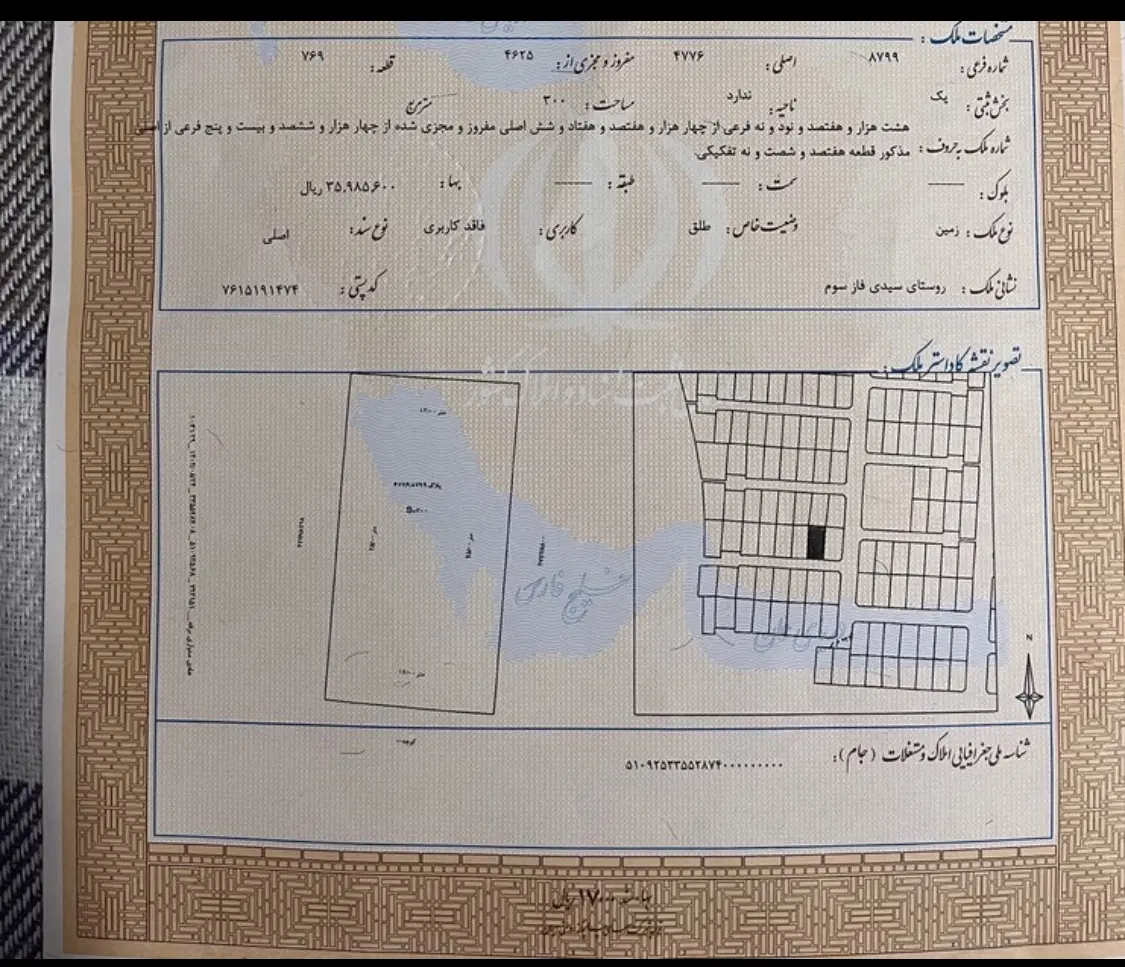 مشخصات ملک :
شماره فرعی : ۸۷۹۹ اصلی : ۴۷۷۶ مفروز و مجزی از : ۴۶۲۵ قطعه : ۷۶۹
بخش ثبتی : یک ناحیه : ندارد مساحت : ۳۰۰ مترمربع
هشت هزار و هفتصد و نود و نه فرعی از چهار هزار و هفتصد و هفتاد و شش اصلی مفروز و مجزی شده از چهار هزار و ششصد و بیست و پنج فرعی از اصلی
شماره ملک به حروف : مذکور قطعه هفتصد و شصت و نه تفکیکی.
بلوک : ——— سمت : ——— طبقه : ——— بها : ۳۵,۹۸۵,۶۰۰ ریال
نوع ملک : زمین وضعیت خاص : طلق کاربری : فاقد کاربری نوع سند : اصلی
نشانی ملک : روستای سیدی فاز سوم کد پستی : ۷۶۱۵۱۹۱۴۷۴
تصویر نقشه کاداستر ملک :
خلیج فارس
N
شناسه ملی جغرافیایی املاک و مستغلات ( جام ) : ۵۱۰۹۲۵۳۳۵۵۲۸۷۴۰۰۰۰۰۰۰۰۰۰